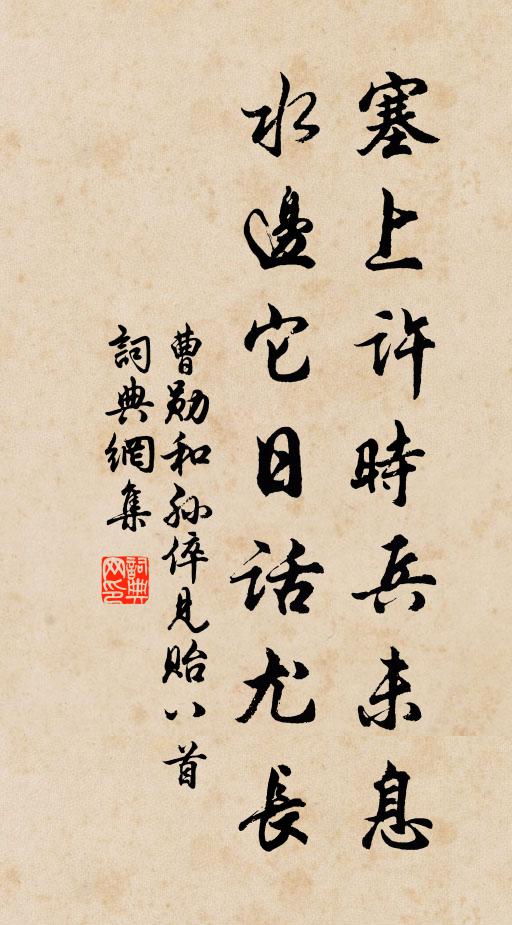 塞上許時兵未息
水邊它日話尤長
曹勛和孫倅見貽八首
詞典網集
詞典网印